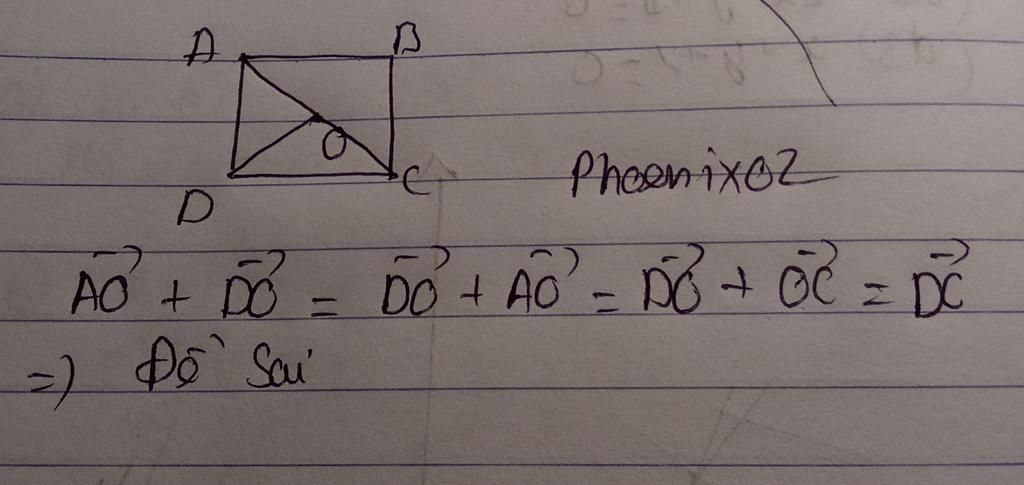 A B
O
D C
Phoenix02
AO⃗ + DO⃗ = DO⃗ + AO⃗ = DO⃗ + OC⃗ = DC⃗
=) Đề Sai